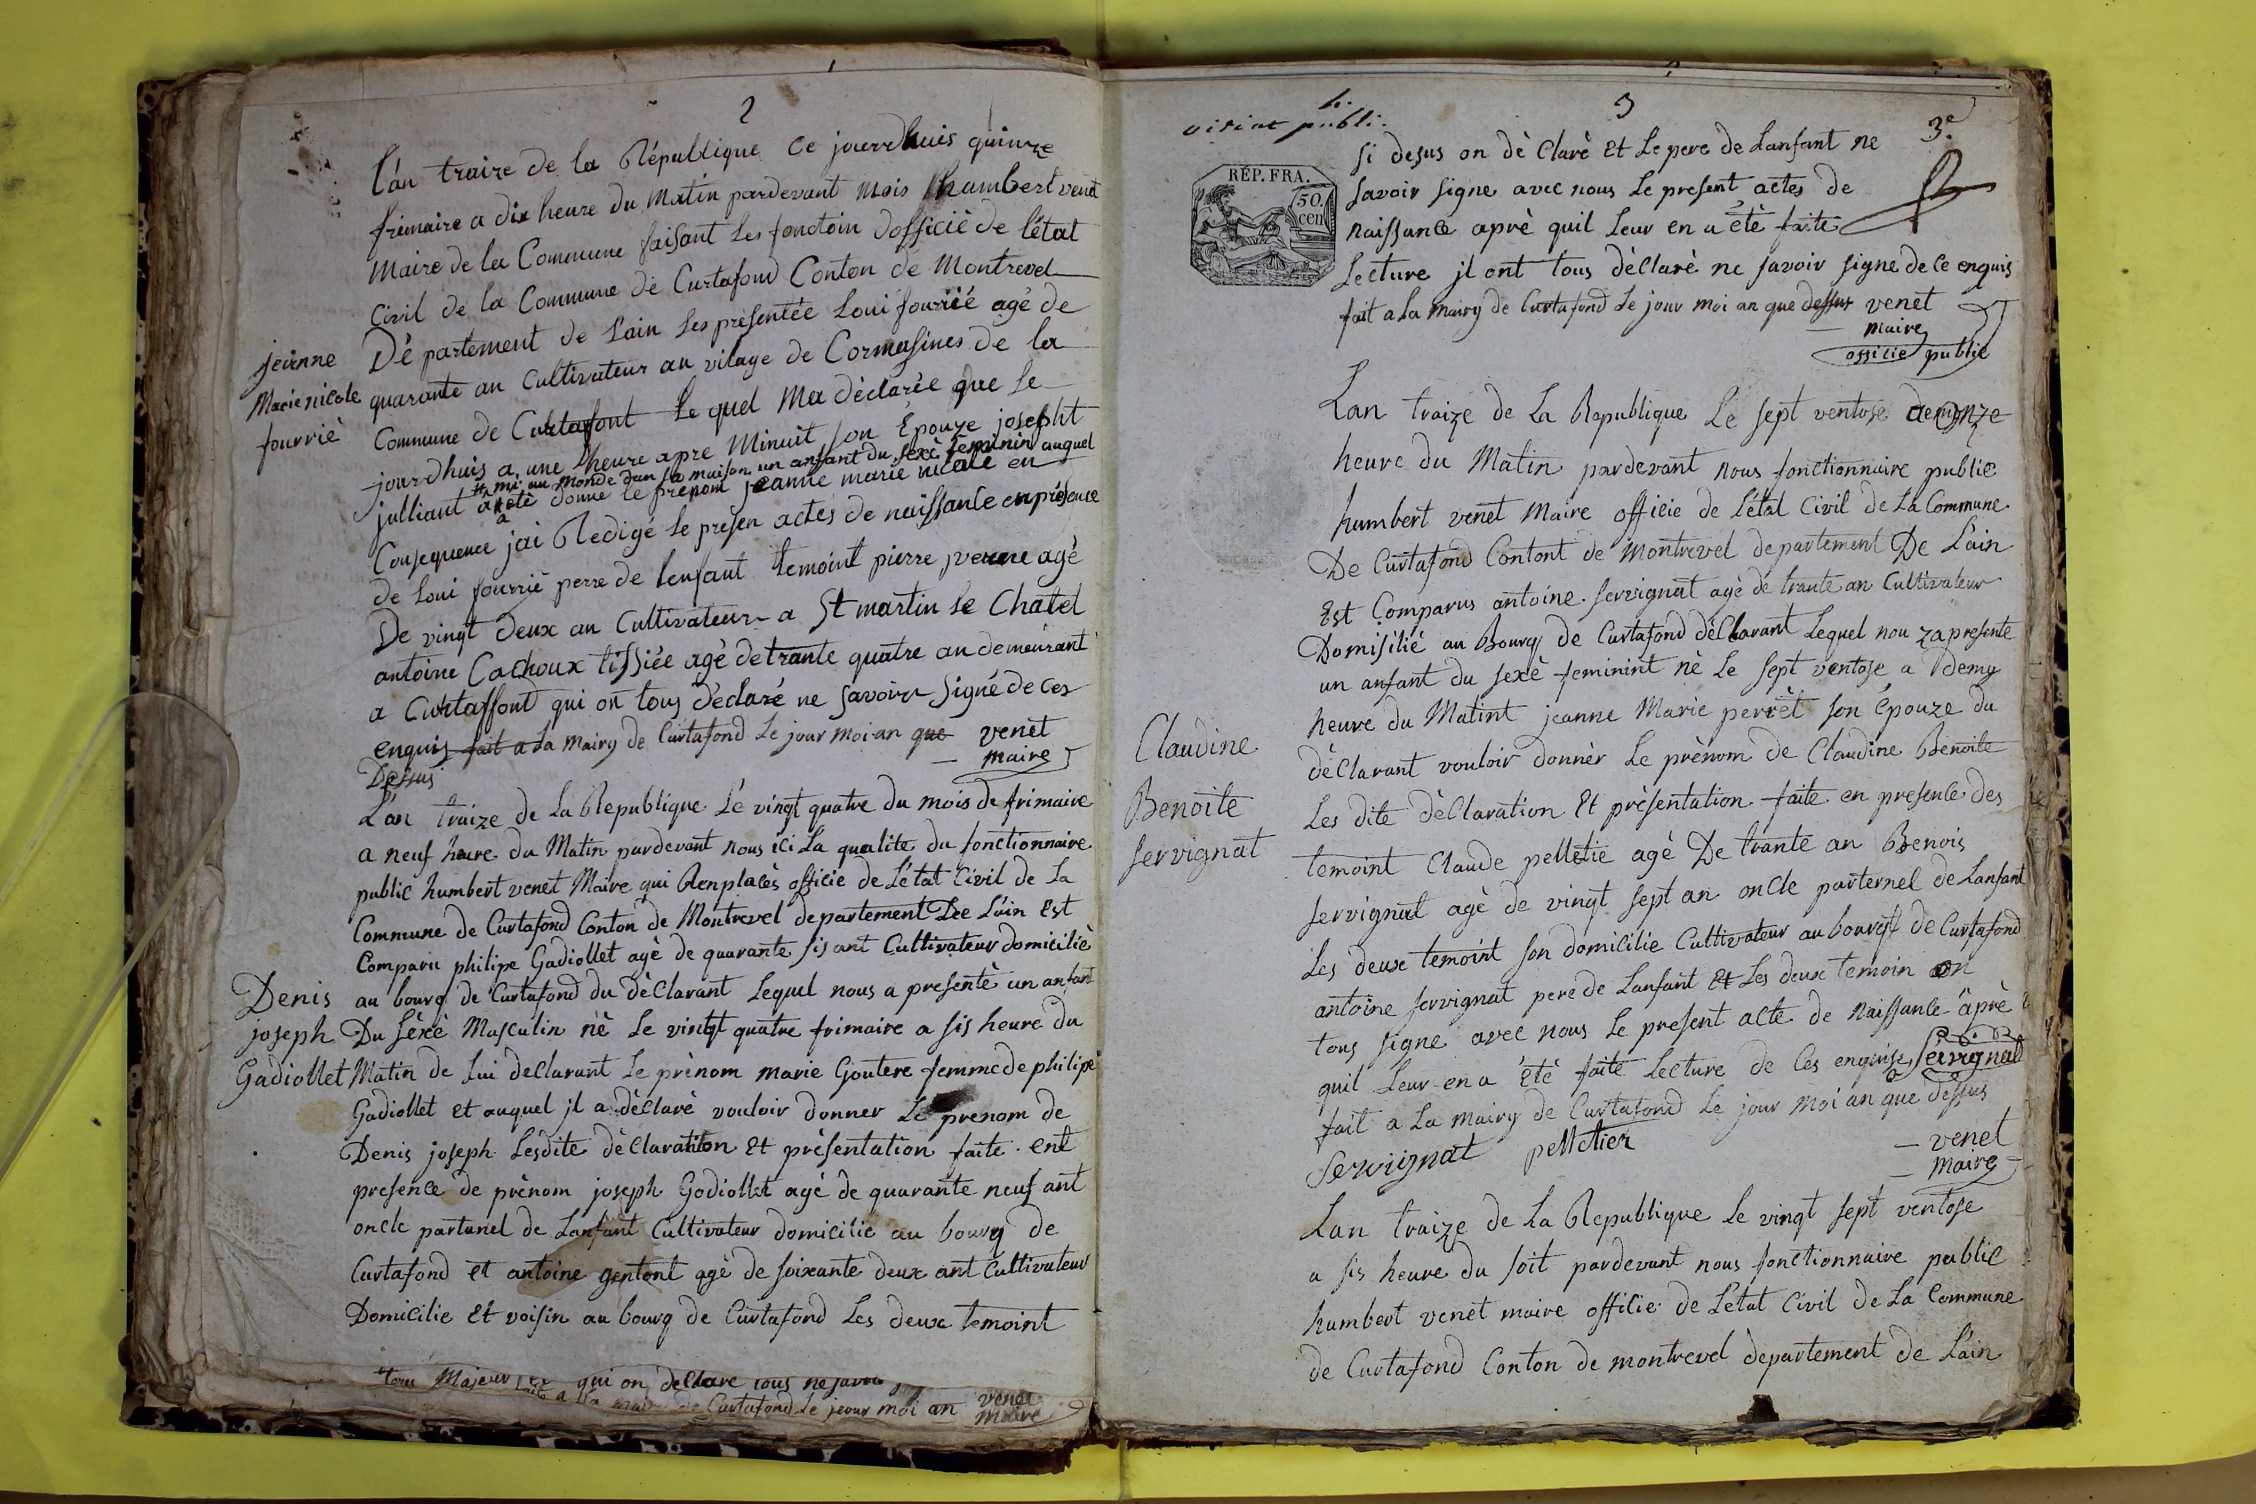 2
L'an traize de la République ce jourdhuis quinze
frimaire a dix heure du Matin pardevant mois humbert venet
Maire de la Commune faisant les fonctoin d'officiè de l'état
Civil de la Commune de Curtafond Conton de Montrevel
Dé partement de L'ain Les présentée Loui fourrié agé de
quarante an Cultivateur au vilage de Cormasines de la
Commune de Curtafont Le quel Ma dèclarèe que le
jourdhuis a une heure apre Minuit son Épouze josepht
julliant a mi au monde dan sa maison un anfant du sexè feminin auquel
a etè donne le prenom jeanne marie nicole en
Consequence jai Redigé le presen actes de naissance en présence
de Loui fourriè perre de lenfant temoint pierre
De vingt deux an Cultivateur a St martin le Chatel
antoine Cachoux tissiée agé de trante quatre an demeurant
a Curtaffond qui on tous déclaré ne savoir Signé de ces
enquis fait a La Mairy de Curtafond Le jour moi an que
Dessus
venet
maire
jeanne
Marie nicole
fourriè
L'an traize de La Republique Lé vingt quatre du mois de frimaire
a neuf heure du Matin pardevant nous ici La qualite du fonctionnaire
public humbert venet Maire qui Renplacès officie de L'état Civil de La
Commune de Curtafond Conton de Montrevel departement Dee L'ain Est
Comparu philipe Gadiollet agè de quarante sis ant Cultivateur domiciliè
au bourg de Curtafond du dèClarant Lequel nous a presentè un anfant
Du Sèxè Masculin nè Le vingt quatre frimaire a sis heure du
Matin de Lui deClarant Le prènom marie Goutere femme de philipe
Gadiollet et auquel jl a dèClarè vouloir donner Le prenom de
Denis joseph Lesdite dèClaration Et prèsentation faite ent
presence de prènom joseph Godiollet agè de quarante neuf ant
oncle parternel de Lanfant Cultivateur domicilie au bourg de
Curtafond et antoine gentont agè de soixante deux ant Cultivateur
Domicilie Et voisin au bourg de Curtafond Les deux temoint
tous Majeur qui on deClare tous ne savoir
faite a La mairy de Curtafond Le jeour moi an
venet
maire
Denis
joseph
Gadiollet
3
3.e
RÉP. FRA.
50.
cen
si desus on dè Clarè Et Le pere de Lanfant ne
savoir signe avec nous Le present actes de
naissance aprè quil Leur en a étè faite
Lecture jl ont tous dèClarè ne savoir signe de Ce enquis
fait a La Mairy de Curtafond Le jour moi an que dessus venet
maire
officie public
Lan traize de La Republique Le sept ventose
heure du Matin pardevant nous fonctionnaire public
humbert venet Maire officie de L'état Civil de La Commune
De Curtafond Contont de Montrevel departement De L'ain
Est Comparus antoine servignat agè de trante an Cultivateur
Domisilié au Bourg de Curtafond déClarant Lequel nou za presente
un anfant du sexè feminint nè Le sept ventose a Demy
heure du Matint jeanne Marie perrèt son Épouze du
dèClarant vouloir donnèr Le prènom de Claudine Benoite
Les dite dèClaration Et présentation faite en presence des
temoint Claude pelletie agè De trante an Benois
servignat agè de vingt sept an oncle parternel de Lanfant
Les deux temoint son domicilie Cultivateur au bourgt de Curtafond
antoine servignat pere de Lanfant Et Les deux temoin on
tous signe avec nous Le present acte de Naissance âprè
quil Leur en a étè faite Lecture de Ces enquise Sèrvignat
fait a La mairy de Curtafond Le jour moi an que dessus
Servignat pelletier
venet
maire
Claudine
Benoite
servignat
Lan traize de La Republique Le vingt sept ventose
a sis heure du soit pardevant nous fonctionnaire public
humbert venet maire officie de L'état Civil de La Commune
de Curtafond Conton de montrevel dèpartement de L'ain